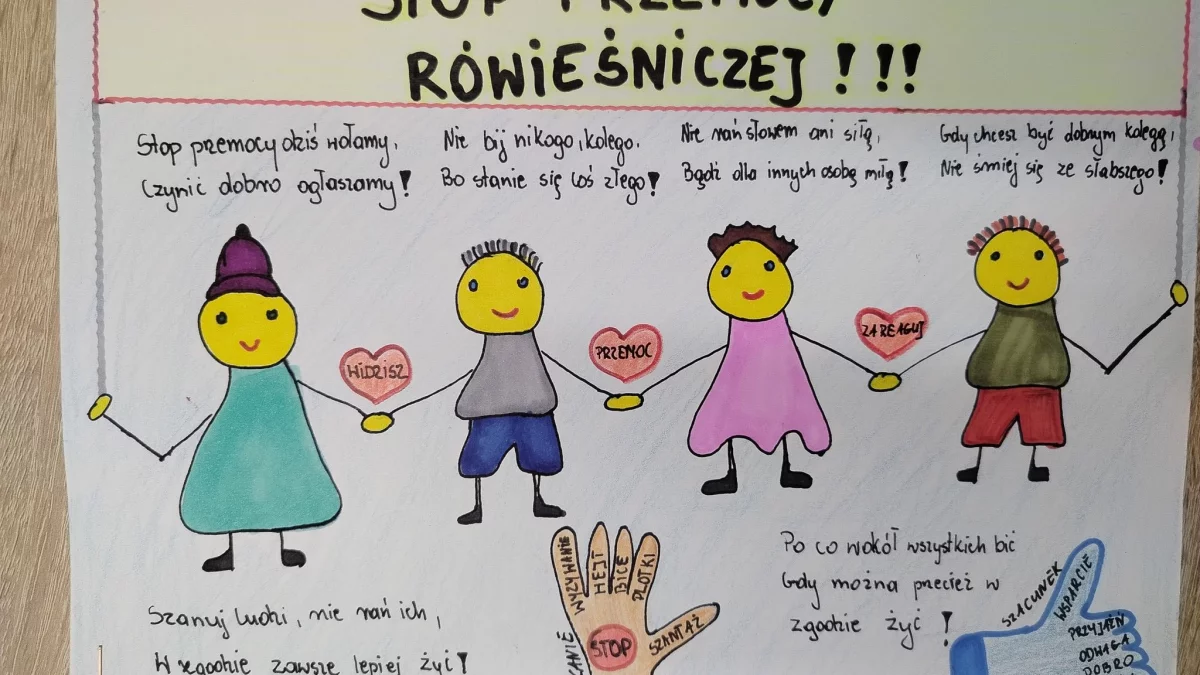 STOP PRZEMOCY
RÓWIEŚNICZEJ !!!
Stop przemocy dziś wołamy,
Czynić dobro ogłaszamy!
Nie bij nikogo, kolego,
Bo stanie się coś złego!
Nie rań słowem ani siłą,
Bądź dla innych osobą miłą!
Gdy chcesz być dobrym kolegą,
Nie śmiej się ze słabszego!
WIDZISZ
PRZEMOC
ZAREAGUJ
Szanuj ludzi, nie rań ich,
W zgodzie zawsze lepiej żyć!
WYZYWANIE
HEJT
BICIE
PLOTKI
SZANTAŻ
STOP
Po co wokół wszystkich bić
Gdy można przecież w
zgodzie żyć !
SZACUNEK
WSPARCIE
PRZYJAŹŃ
ODWAGA
DOBRO